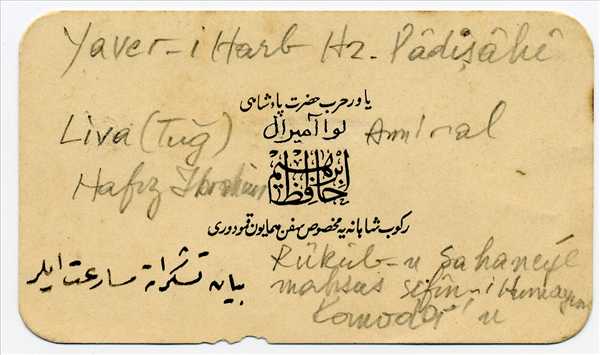 Yaver-i Harb Hz. Pâdişâhî
یاور حرب حضرت پادشاهی
Liva (Tuğ) لوا آمیرال Amiral
Hafız Ibrahim حافظ ابراهیم
رکوب شاهانه یه مخصوص سفن همایون قومودوری
Rükûb-u Şahaneye
بیان تشکراته مسارعت ایلر
mahsus sefîn-i Hümayun
Komodor'u